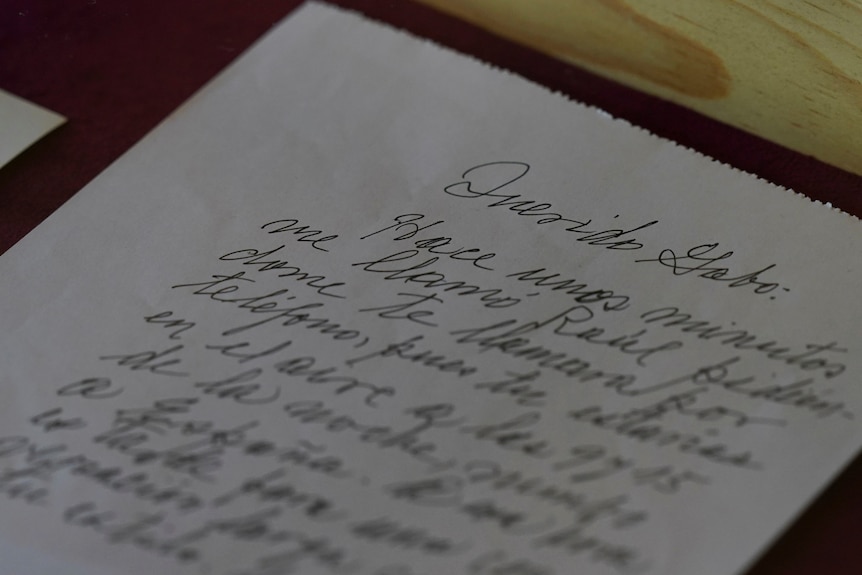 Querido Gabo:
Hace unos minutos
me llamó Raúl pidien-
dome te llamara por
teléfono, pues tu estarías
en el aire a las 9 y 15
de la noche, rumbo
a España. A esa hora
es tarde para una